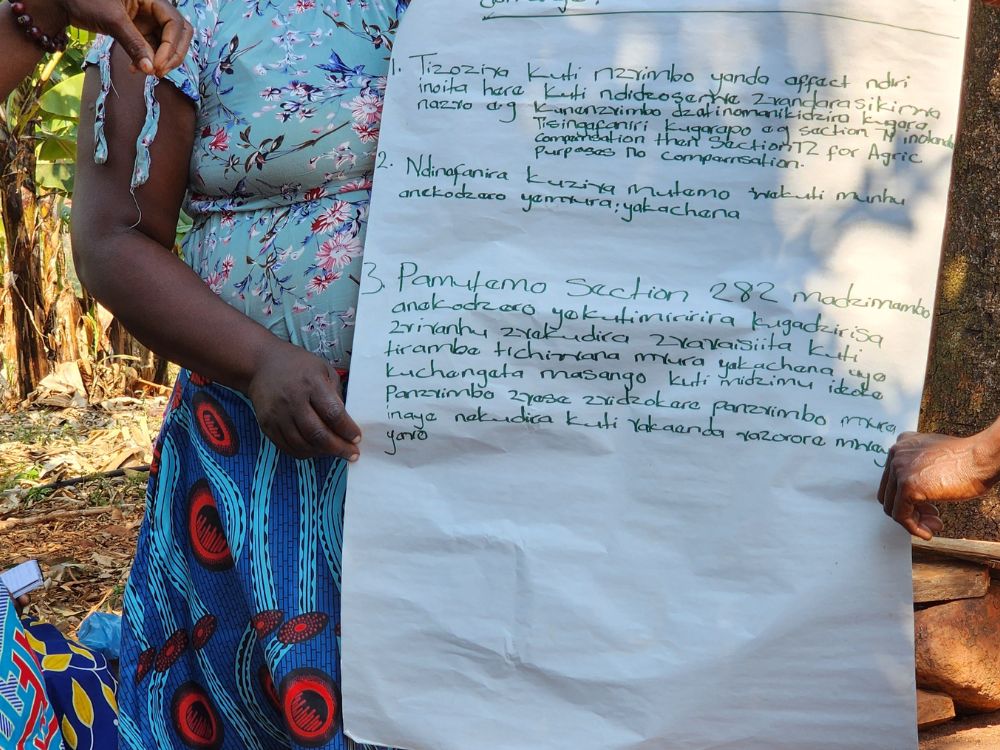 1. Tizoziva kuti nzvimbo yanda affect ndiri
inoita here kuti ndidzoserwe zvandarasikirwa
nazvo e.g kunenzvimbo dzatinomanikidzira kugara
Tisingafaniri kugarapo e.g section 71 inolenda
compensation then section 72 for Agric
purposes no compensation.
2. Ndinofanira kuziva mutemo wekuti munhu
anekodzero yemvura; yakachena
3. Pamutemo Section 282 madzimambo
anekodzero yekutimiririra kugadzirisa
zvivanhu zvekudira zvavaisiita kuti
tirambe tichinwana mvura yakachena uye
kuchengeta masango kuti midzimu idecke
panzvimbo zvese zvidzokere panzvimbo mvura
inaye nekudira kuti vakaenda vazorore mweya
yavo